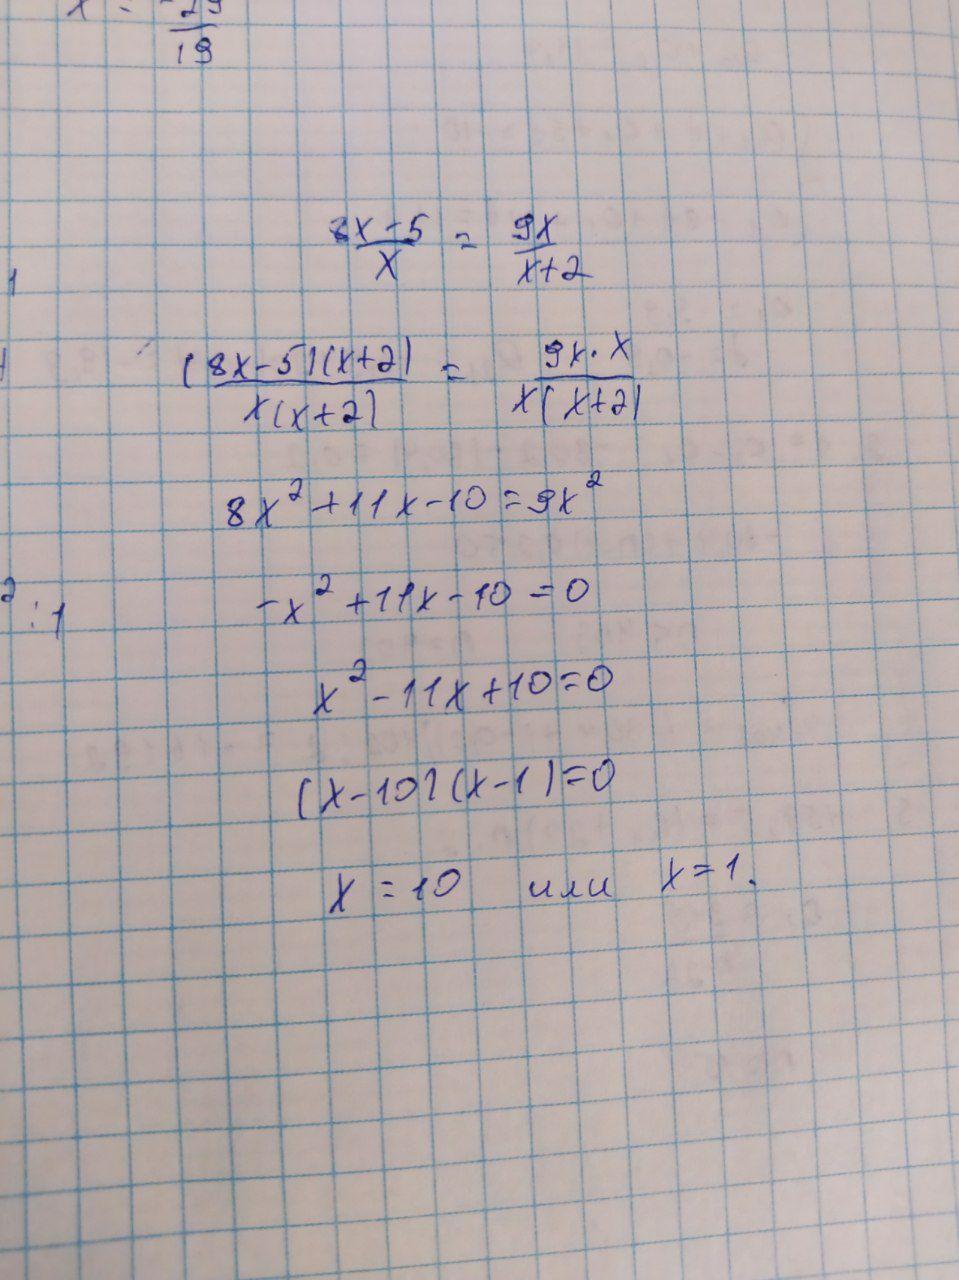 x = -29/19
(8x-5)/x = 9x/(x+2)
1
((8x-5)(x+2))/(x(x+2)) = (9x·x)/(x(x+2))
8x² + 11x - 10 = 9x²
2 : 1
-x² + 11x - 10 = 0
x² - 11x + 10 = 0
(x-10)(x-1) = 0
x = 10 или x = 1.